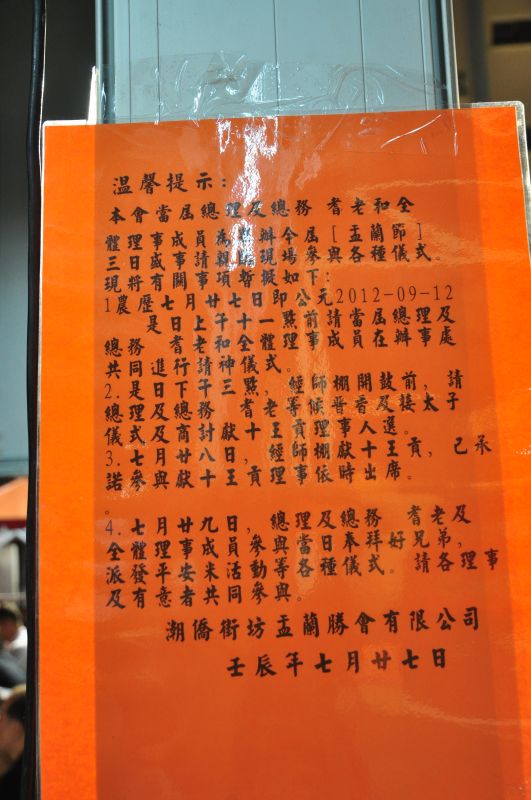 溫馨提示：
本會當屆總理及總務 耆老和全
體理事成員為 辦今屆 [ 盂蘭節 ]
三日盛事請親臨現場參與各種儀式。
現將有關事項暫擬如下：
1農歷七月廿七日即公元2012-09-12
是日上午十一點前請當屆總理及
總務 耆老和全體理事成員在辦事處
共同進行請神儀式。
2.是日下午三點，經師棚開鼓前，請
總理及總務 耆老等候晋香及接太子
儀式及商討獻十王貢理事人選。
3.七月廿八日，經師棚獻十王貢，已承
諾參與獻十王貢理事依時出席。
。
4.七月廿九日，總理及總務 耆老及
全體理事成員參與當日奉拜好兄弟，
派發平安米活動等各種儀式。請各理事
及有意者共同參與。
潮僑街坊盂蘭勝會有限公司
壬辰年七月廿七日